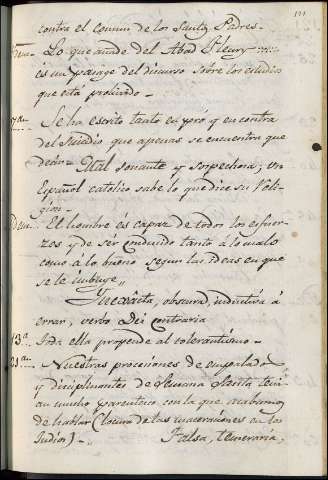 contra el comun de los Santos Padres.
Lo que añade del Abad Fleury
es un pasage del discurso sobre los estudios
que está prohivido.
Se ha escrito tanto en pró y en contra
del Suicidio que apenas se encuentra que
decir. Mal sonante y sospechosa; un
Español catolico sabe lo que dice su Reli-
gion.
Idem. El hombre es capaz de todos los esfuer-
zos y de ser conducido tanto á lo malo
como á lo bueno segun las ideas en que
se le imbuye,,
Inexácta, obscura, inductiva á
errar, verbo Dei contraria
13ª Toda ella propende al tolerantismo.
Nuestras procesiones de empalados
y disciplinantes de Semana Santa tenian
mucho parentesco con la que acabamos
de hablar (locura de las maceraciones de los
Indios). Falsa, temeraria,